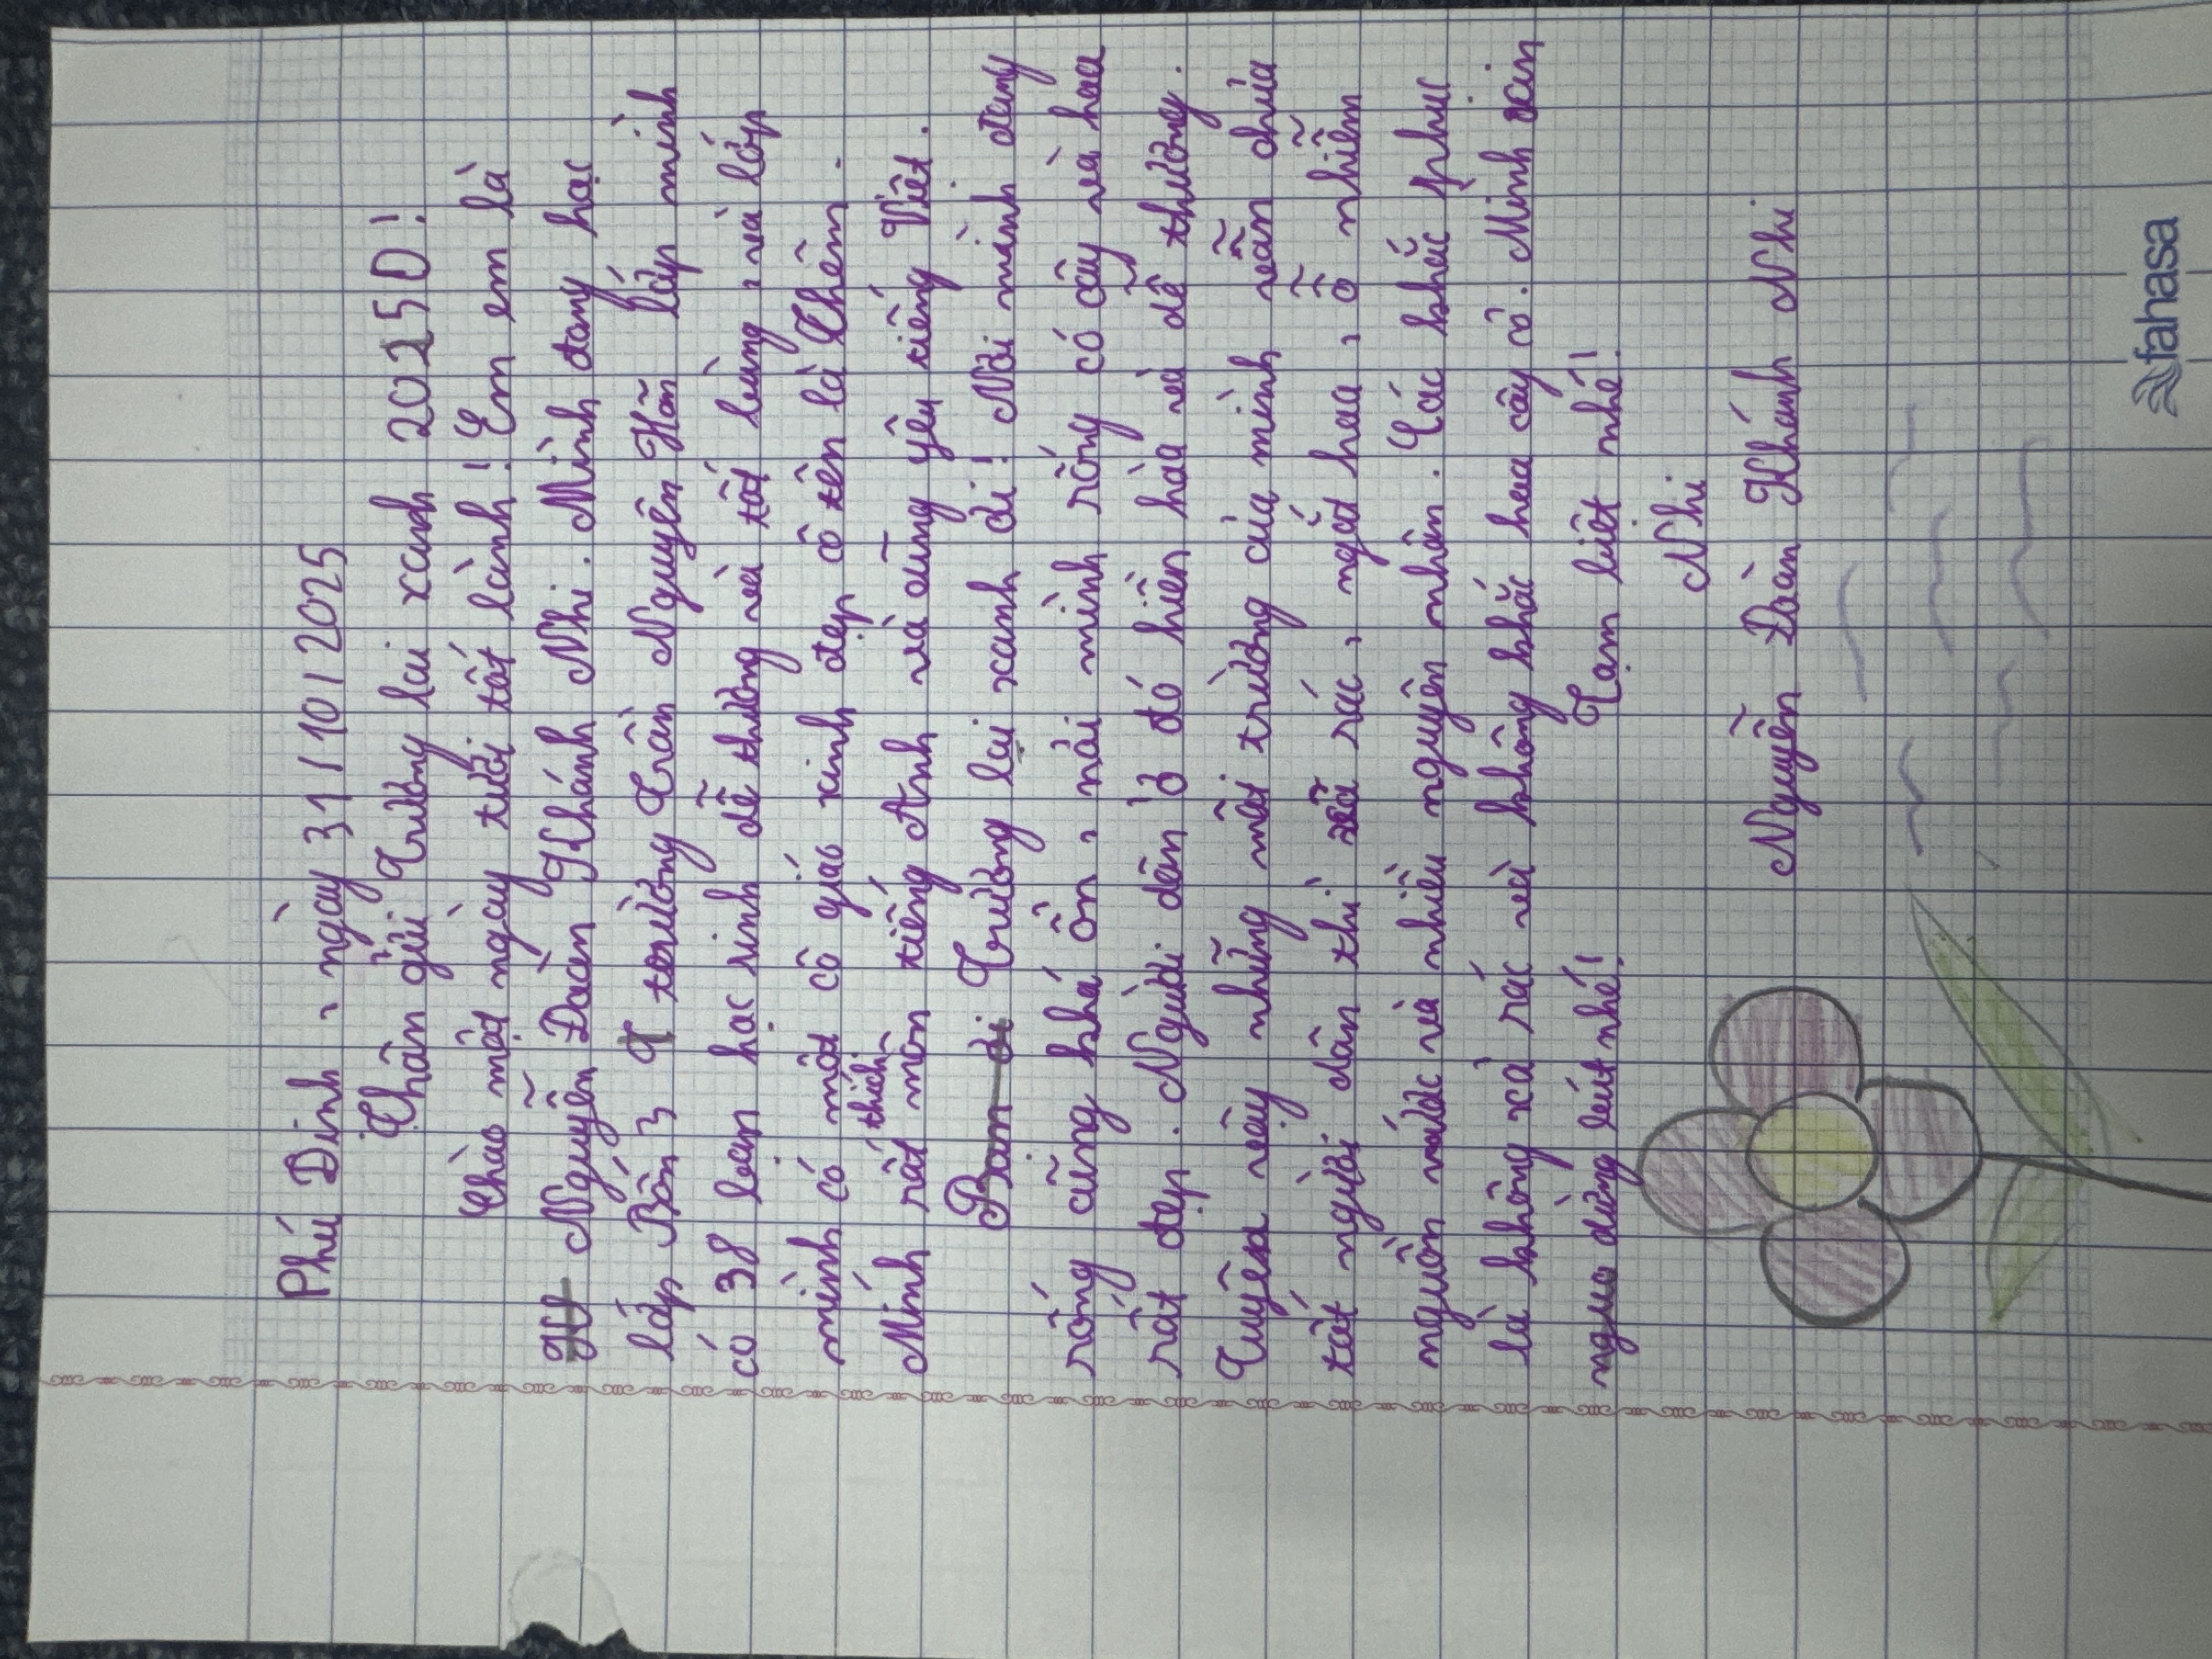 Phú Định, ngày 31/10/2025
Thân gửi Trường lai xanh 2025D!
Chào một ngày tươi tốt lành! Em em là
Nguyễn Đoàn Khánh Nhi. Mình đang học
lớp Bốn 3 trường Trần Nguyên Hãn lớp mình
có 38 bạn học sinh dễ thương và tốt bụng, và lớp
mình có một cô giáo xinh đẹp cô tên là Thêm.
Mình rất thích môn tiếng Anh và cũng yêu tiếng Việt.
Trường lai xanh ơi! Nơi mình đang
rống cũng khá ôn, nơi mình rống có cây và hoa
rất đẹp. Người dân ở đó hiền hòa và dễ thương.
Tuyên vây những môi trường của mình vẫn chưa
tốt người dân thi xã rác, ngắt hoa, ô nhiễm
nguồn nước và nhiều nguyên nhân. Các khắc phục
là không xả rác và không khắc hoa cây cỏ. Mình xin
ngua dừng bút nhé! Tạm biệt nhé!
Nhi
Nguyễn Đoàn Khánh Nhi
fahasa